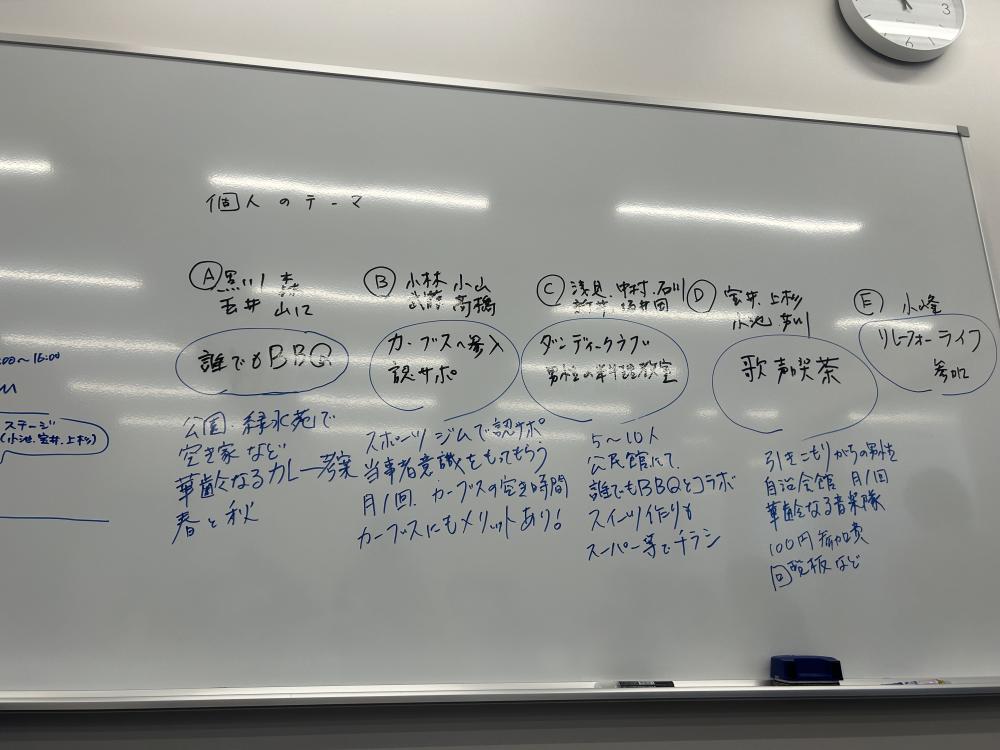 個人のテーマ
Ⓐ 黒川 森
玉井 山口
誰でもBBQ
公園.緑水苑で
空き家など
華齢なるカレー考案
春と秋
Ⓑ 小林 小山
武藤 高橋
カーブスへ参入
認サポ
スポーツジムで認サポ
当事者意識をもってもらう
月1回.カーブスの空き時間
カーブスにもメリットあり!
Ⓒ 浅見.中村.石川
ダンディークラブ
男性の料理教室
5～10人
公民館にて
誰でもBBQとコラボ
スイーツ作りも
スーパー等でチラシ
Ⓓ 室井.上杉
小池.芳川
歌声喫茶
引きこもりがちの男性
自治会館 月1回
華齢なる音楽隊
100円参加費
回覧板など
Ⓔ 小峰
リレーフォーライフ
参加
:00～16:00
ステージ
(小池.室井.上杉)
3
6